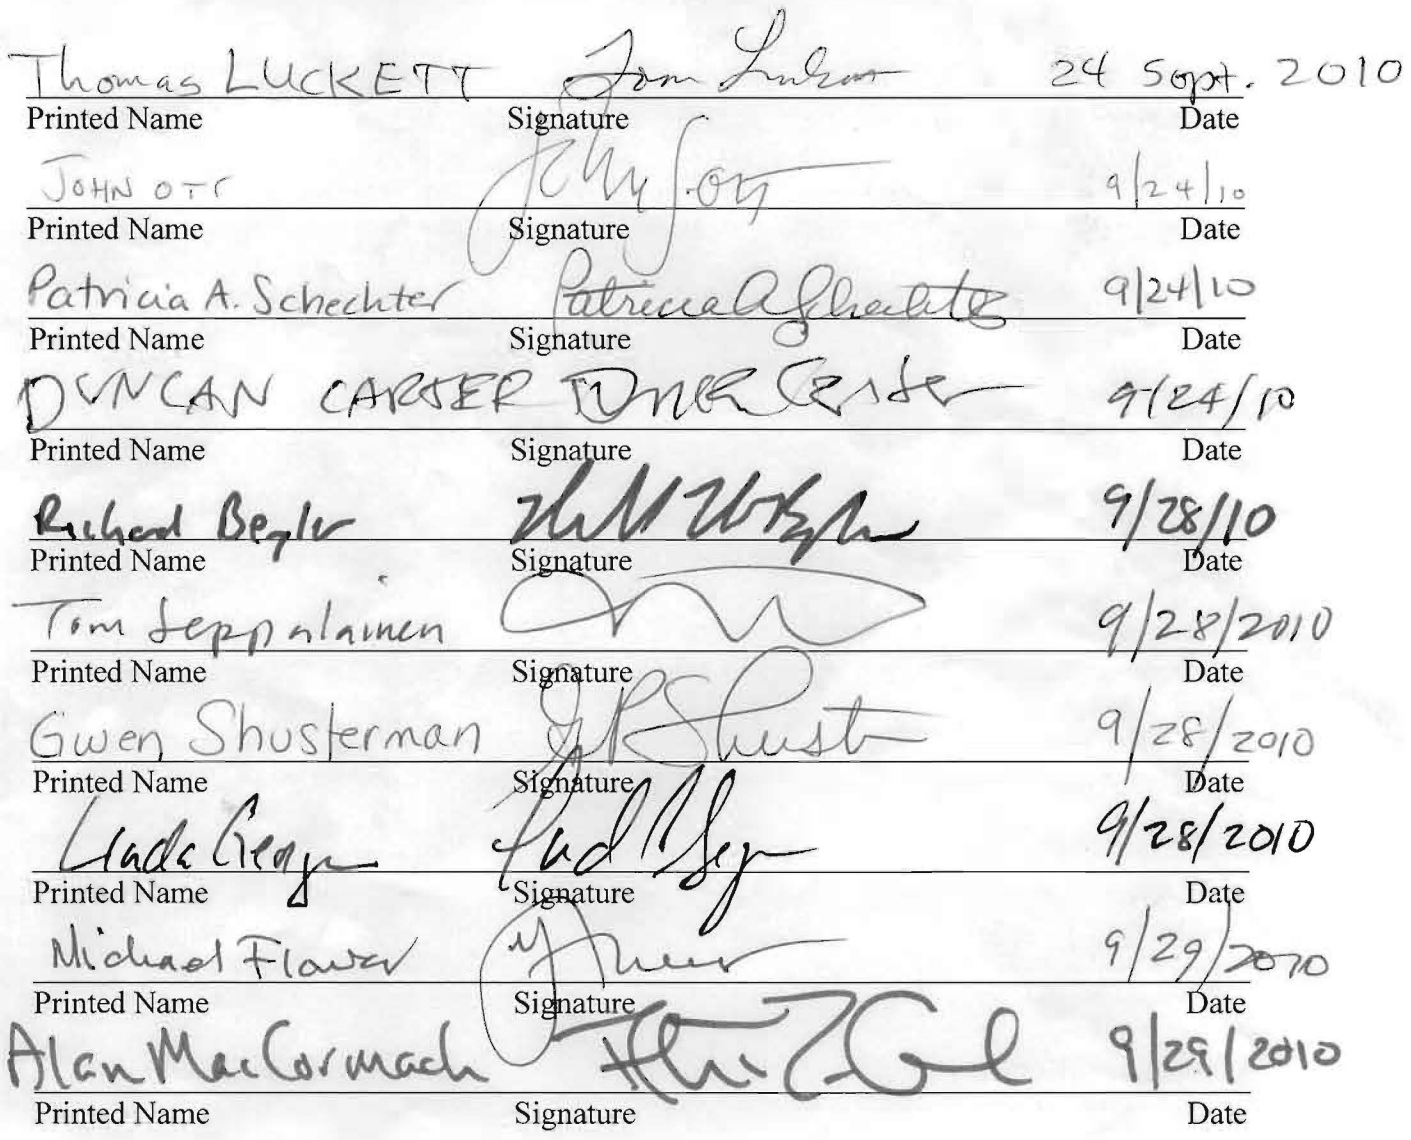 Thomas LUCKETT Tom Luckett 24 Sept. 2010
Printed Name Signature Date
JOHN OTT John S. Ott 9/24/10
Printed Name Signature Date
Patricia A. Schechter Patricia A Schechter 9/24/10
Printed Name Signature Date
DUNCAN CARTER Duncan Carter 9/24/10
Printed Name Signature Date
Richard Beyler 9/28/10
Printed Name Signature Date
Tom Seppalainen 9/28/2010
Printed Name Signature Date
Gwen Shusterman G P Shust 9/28/2010
Printed Name Signature Date
Linda George 9/28/2010
Printed Name Signature Date
Michael Flower 9/29/2010
Printed Name Signature Date
Alan MacCormack 9/29/2010
Printed Name Signature Date